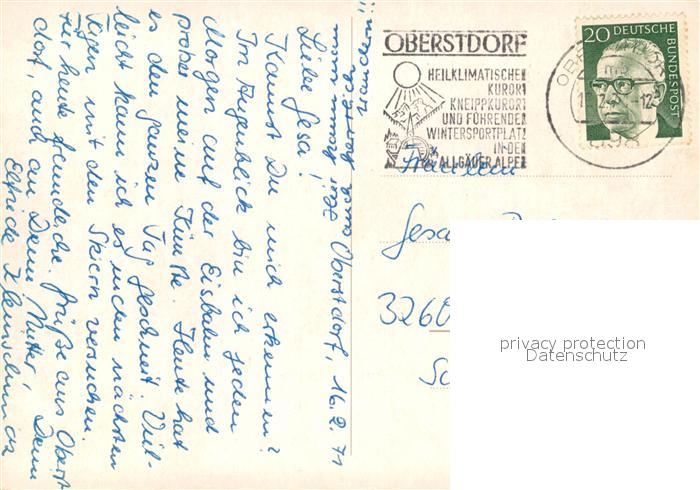 Oberstdorf, 16.2.71
Liebe Gesa!
Kannst Du mich erkennen?
Im Augenblick bin ich jeden
Morgen auf der Eisbahn und
probe meine Künste. Heute hat
es den ganzen Tag geschneit. Viel-
leicht kann ich es in den nächsten
Tagen mit den Skiern versuchen.
Für heute freundliche Grüße aus Oberst
dorf, auch an Deine Mutter, Deine
Elfriede
wandern!!
OBERSTDORF
HEILKLIMATISCHER
KURORT
KNEIPPKURORT
UND FÜHRENDER
WINTERSPORTPLATZ
IN DEN
ALLGÄUER ALPEN
20 DEUTSCHE
BUNDESPOST
Fräulein
Gesa
3260
privacy protection
Datenschutz